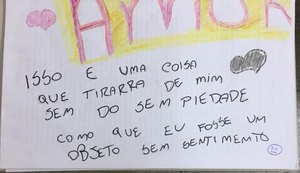 AMOR
ISSO E UMA COISA
QUE TIRARRA DE MIM
SEM DO SEM PIEDADE
COMO QUE EU FOSSE UM
OBJETO SEM SENTIMENTO